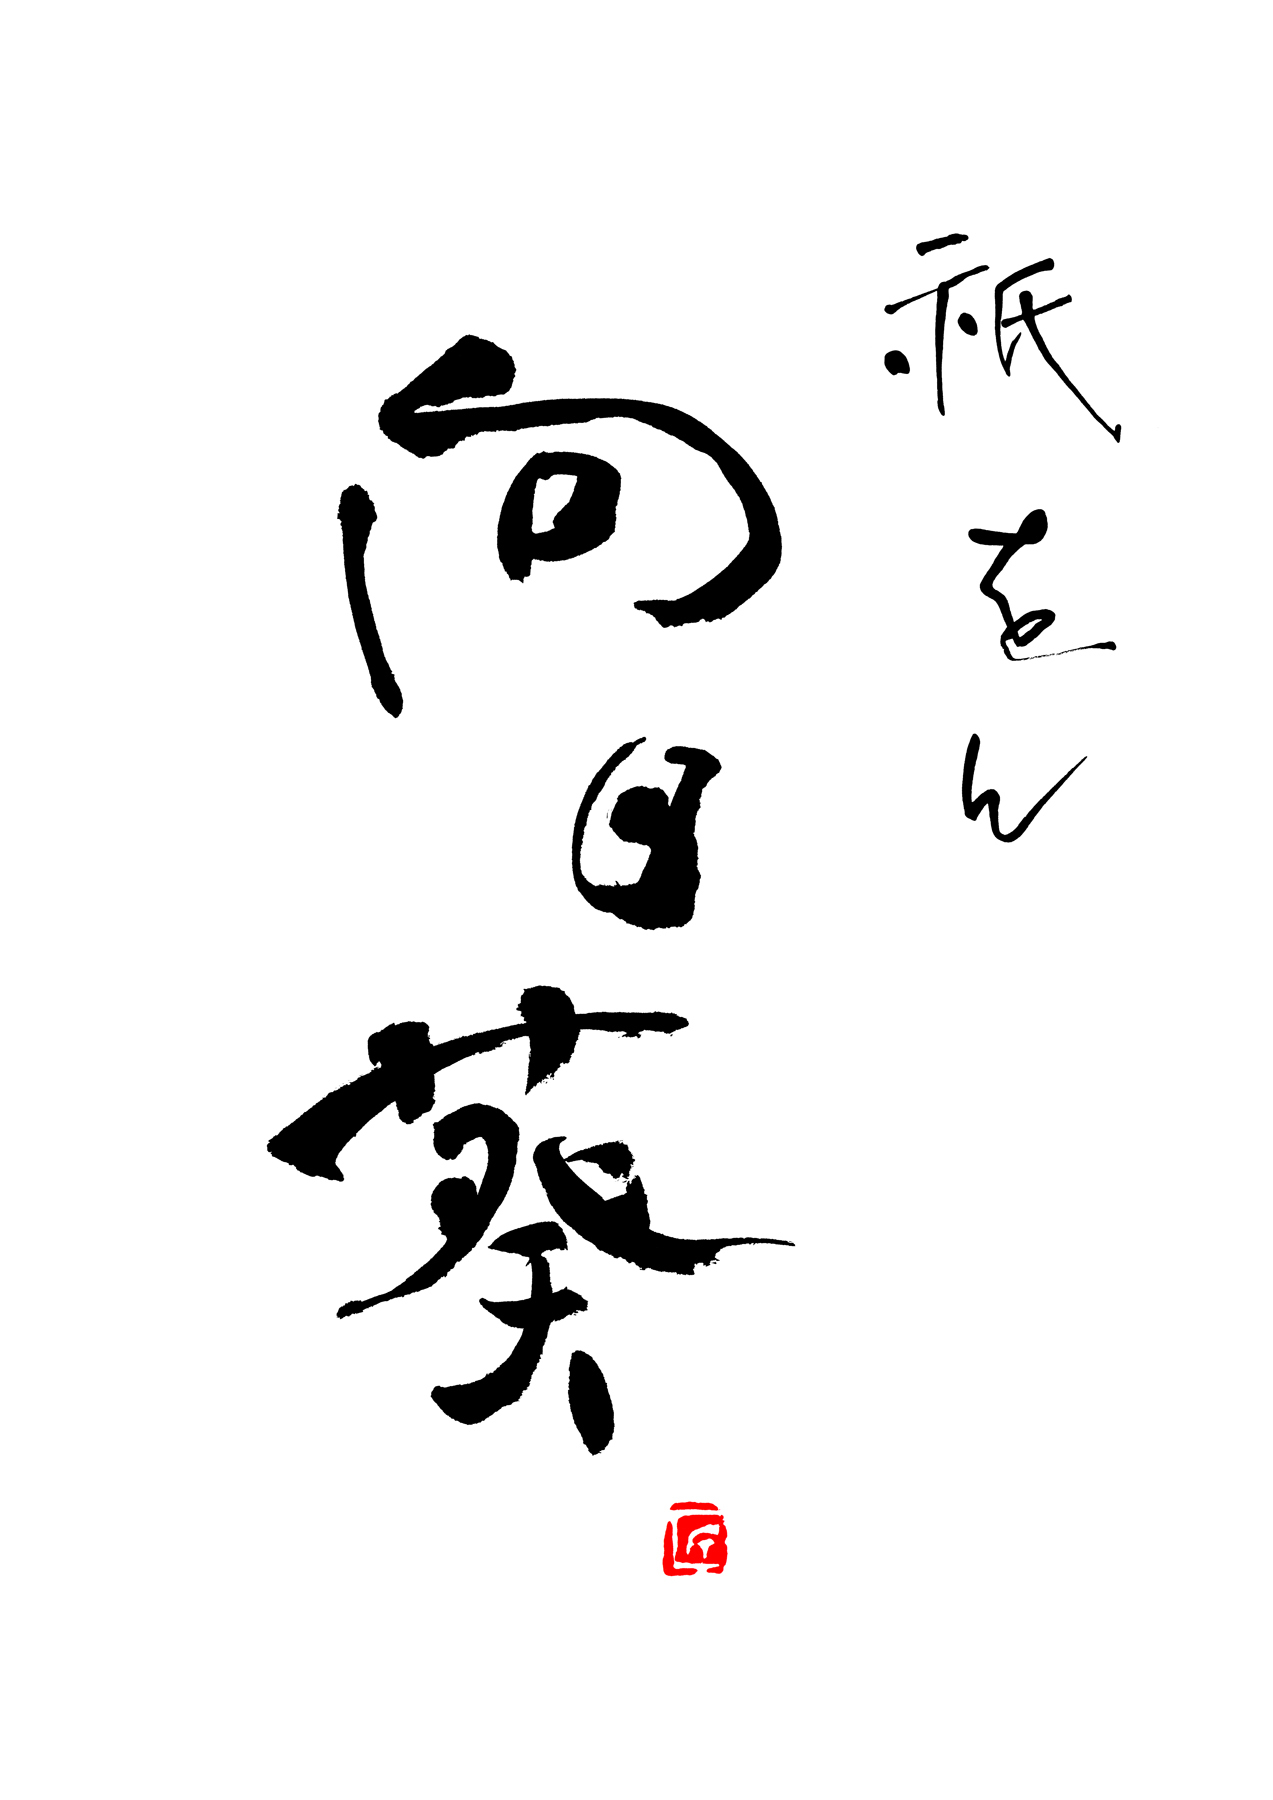 祇をん
向日葵
匠